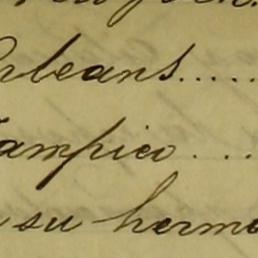 Orleans.....
Tampico....
su herma